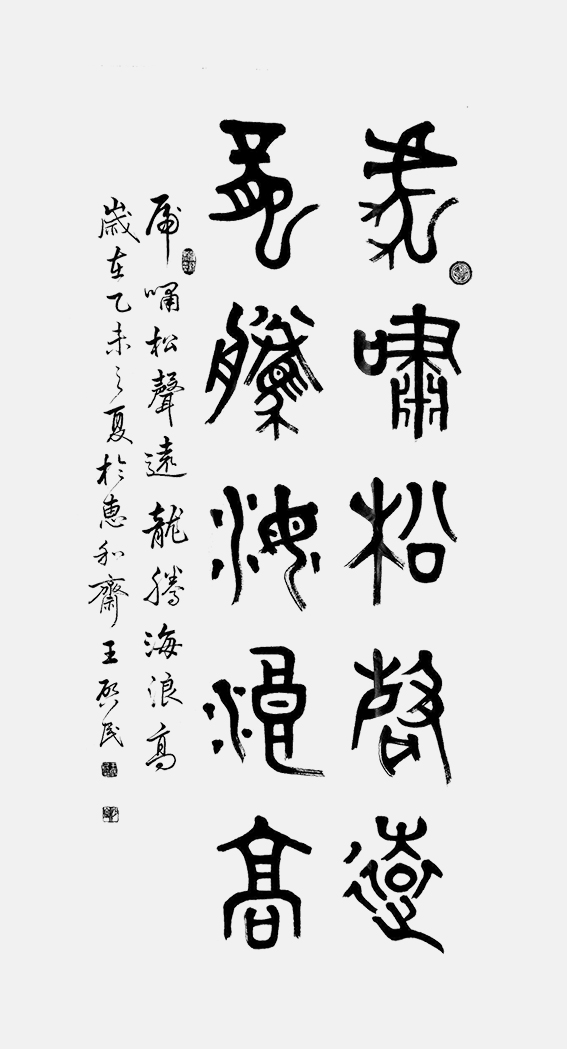 虎嘯松聲遠
龍騰海浪高
虎嘯松聲遠龍騰海浪高
歲在乙未之夏於惠和齋王啓民